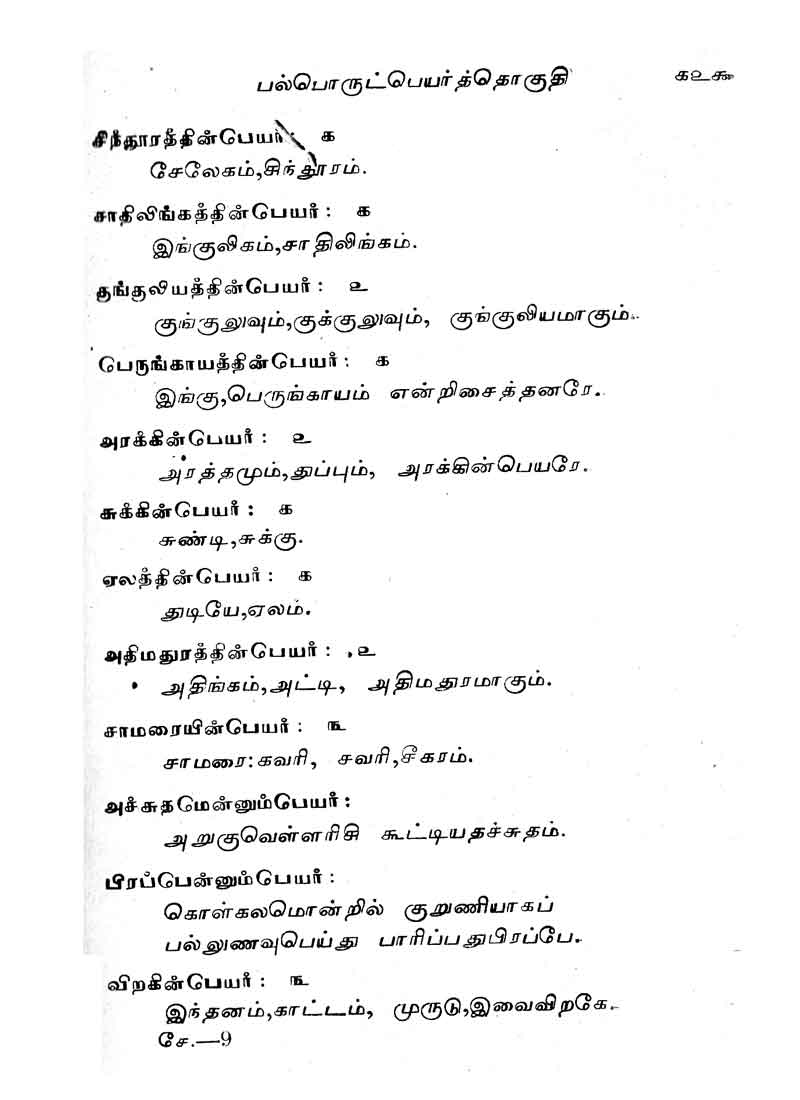 பல்பொருட்பெயர்த்தொகுதி ௧௨௯
சிந்தூரத்தின்பெயர்: ௧
சேலேகம்,சிந்தூரம்.
சாதிலிங்கத்தின்பெயர்: ௧
இங்குலிகம்,சாதிலிங்கம்.
குங்குலியத்தின்பெயர்: ௨
குங்குலுவும்,குக்குலுவும், குங்குலியமாகும்.
பெருங்காயத்தின்பெயர்: ௧
இங்கு,பெருங்காயம் என்றிசைத்தனரே.
அரக்கின்பெயர்: ௨
அரத்தமும்,துப்பும், அரக்கின்பெயரே.
சுக்கின்பெயர்: ௧
சுண்டி,சுக்கு.
ஏலத்தின்பெயர்: ௧
துடியே,ஏலம்.
அதிமதுரத்தின்பெயர்: ௨
அதிங்கம்,அட்டி, அதிமதுரமாகும்.
சாமரையின்பெயர்: ௩
சாமரை:கவரி, சவரி,சீகரம்.
அச்சுதமென்னும்பெயர்:
அறுகுவெள்ளரிசி கூட்டியதச்சுதம்.
பிரப்பென்னும்பெயர்:
கொள்கலமொன்றில் குறுணியாகப்
பல்லுணவுபெய்து பாரிப்பதுபிரப்பே.
விறகின்பெயர்: ௩
இந்தனம்,காட்டம், முருடு,இவைவிறகே.
சே.—9